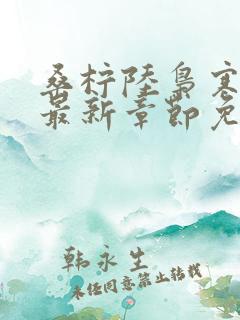 桑柠陆枭寒
最新章节免
韩永生
未经同意禁止转载